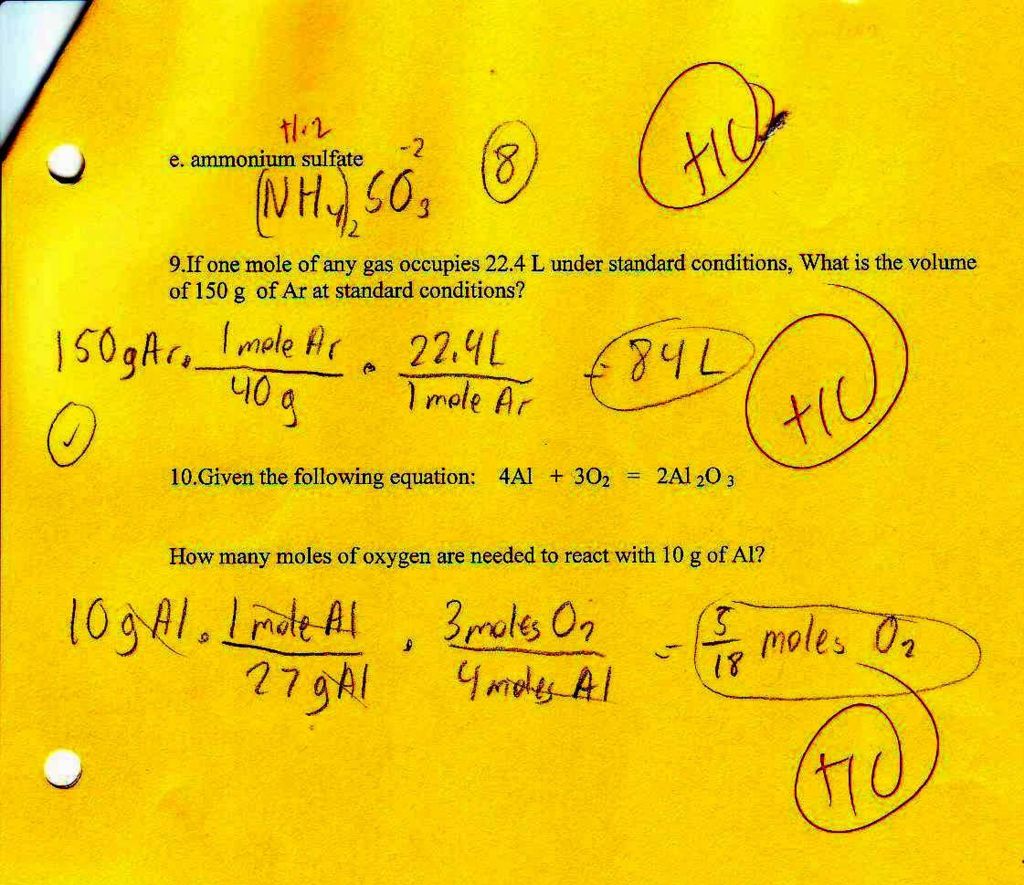 +1.2
e. ammonium sulfate -2 8 +10
(NH4)2 SO3
9.If one mole of any gas occupies 22.4 L under standard conditions, What is the volume
of 150 g of Ar at standard conditions?
150gAr. 1 mole Ar / 40 g . 22.4L / 1 mole Ar = 84 L +10
✓
10.Given the following equation: 4Al + 3O2 = 2Al 2O 3
How many moles of oxygen are needed to react with 10 g of Al?
10gAl . 1 mole Al / 27gAl . 3moles O2 / 4 moles Al = 5/18 moles O2
+10